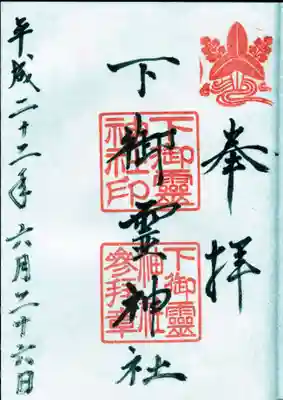 奉拝
下御靈神社
下御靈神社印
下御靈神社参拜章
平成二十二年六月二十六日